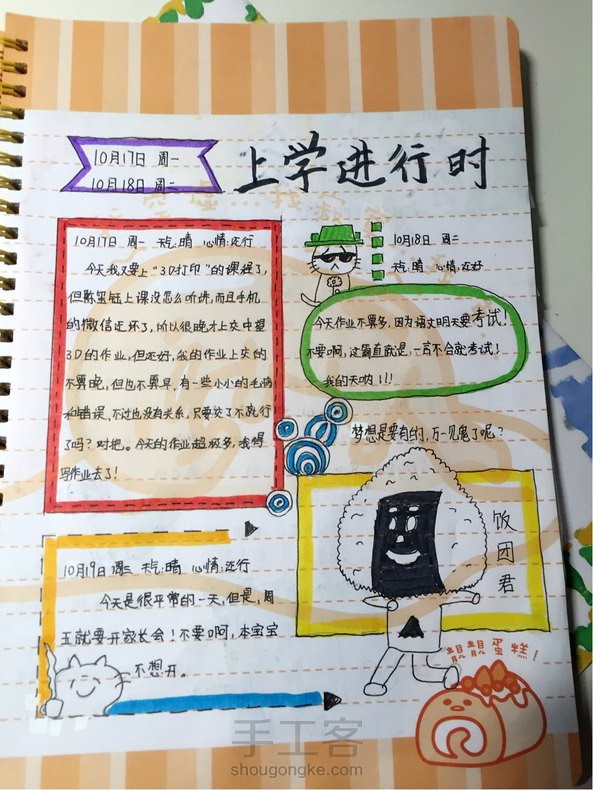 10月17日 周一
10月18日 周二
上学进行时
10月17日 周一 天气:晴 心情:还行
今天我又要上“3D打印”的课程了,
但陈墨钰上课没怎么听讲,而且手机
的微信还坏了,所以很晚才上交中望
3D的作业,但还好,我的作业上交的
不算晚,但也不算早,有一些小小的毛病
和错误,不过也没有关系,只要交了不就行
了吗?对把。今天的作业超级多,我得
写作业去了!
10月18日 周二
天气:晴 心情:还好
今天作业不算多,因为语文明天要考试!
不要啊,这简直就是,一言不合就考试!
我的天呐!!!
梦想是要有的,万一见鬼了呢?
饭团君
10月19日 周三 天气:晴 心情:还行
今天是很平常的一天,但是,周
五就要开家长会!不要啊,本宝宝
不想开。
靓靓蛋糕!
手工客
shougongke.com